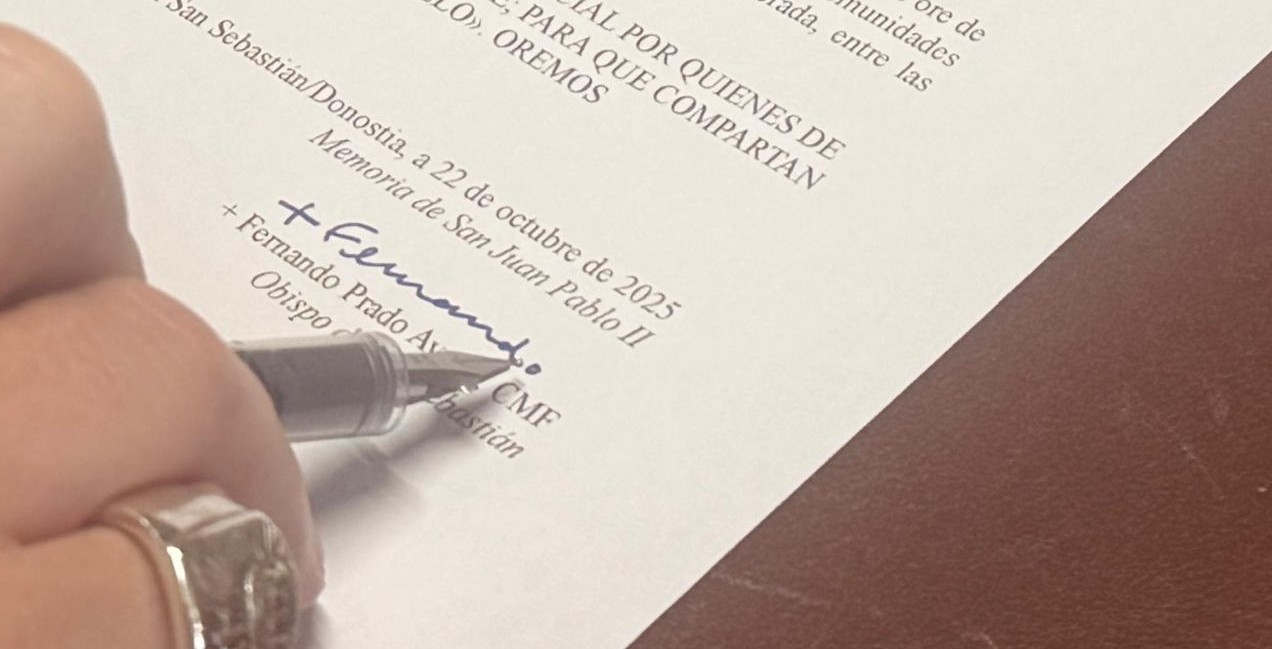 ore de
munidades
rada, entre las
CIAL POR QUIENES DE
PARA QUE COMPARTAN
OREMOS
San Sebastián/Donostia, a 22 de octubre de 2025
Memoria de San Juan Pablo II
+ Fernando
+ Fernando Prado CMF
Obispo